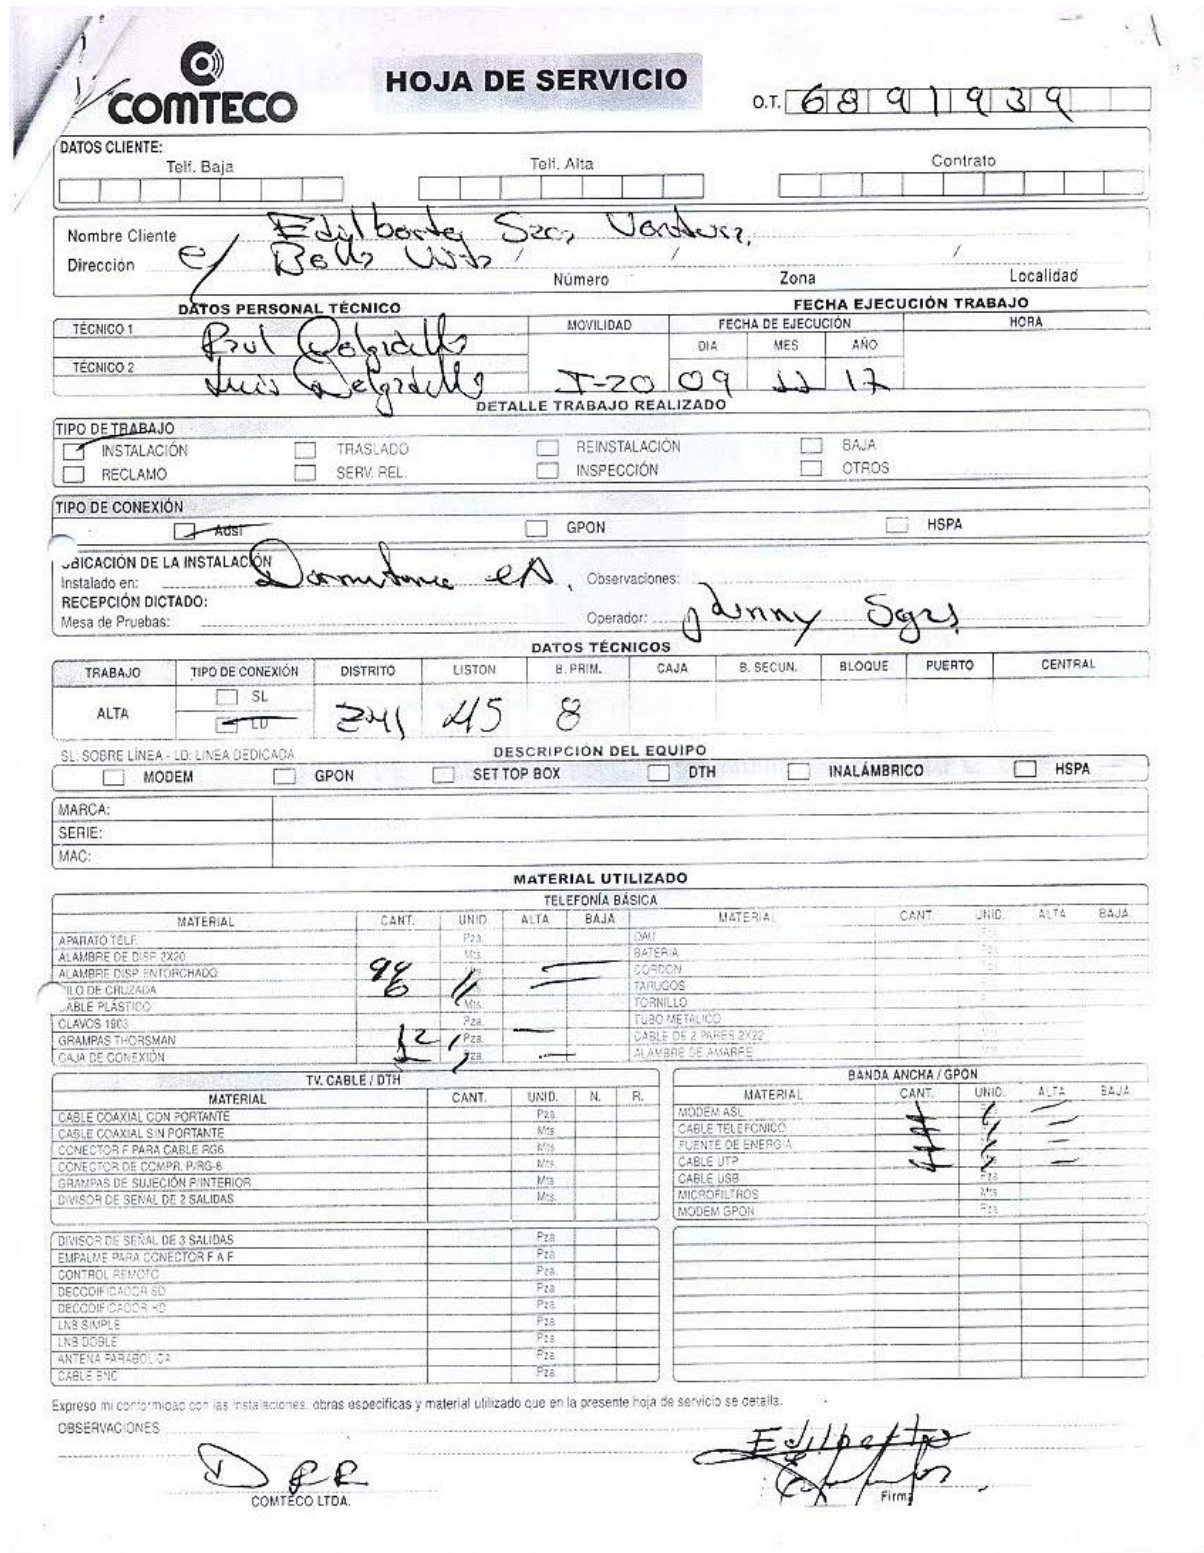 COMTECO
HOJA DE SERVICIO
O.T. 6891939
DATOS CLIENTE:
Telf. Baja Telf. Alta Contrato
Nombre Cliente Edilberto Ventura
Dirección c/ Bella Vista / / /
Número Zona Localidad
DATOS PERSONAL TÉCNICO FECHA EJECUCIÓN TRABAJO
TÉCNICO 1 Raul Delgadillo MOVILIDAD FECHA DE EJECUCIÓN HORA
DIA MES AÑO
TÉCNICO 2 Luis Delgadillo I-20 09 11 17
DETALLE TRABAJO REALIZADO
TIPO DE TRABAJO
INSTALACIÓN TRASLADO REINSTALACIÓN BAJA
RECLAMO SERV. REL. INSPECCIÓN OTROS
TIPO DE CONEXIÓN
Adsl GPON HSPA
UBICACIÓN DE LA INSTALACIÓN
Instalado en: Dormitorio Observaciones:
RECEPCIÓN DICTADO:
Mesa de Pruebas: Operador: Jhnny
DATOS TÉCNICOS
TRABAJO TIPO DE CONEXIÓN DISTRITO LISTON B. PRIM. CAJA B. SECUN. BLOQUE PUERTO CENTRAL
SL
ALTA LD 241 45 8
SL: SOBRE LÍNEA - LD: LINEA DEDICADA DESCRIPCIÓN DEL EQUIPO
MODEM GPON SET TOP BOX DTH INALÁMBRICO HSPA
MARCA:
SERIE:
MAC:
MATERIAL UTILIZADO
TELEFONÍA BÁSICA
MATERIAL CANT. UNID ALTA BAJA MATERIAL CANT UNID. ALTA BAJA
APARATO TELF. Pza.
ALAMBRE DE DISP. 2X20 Mts BATERIA
ALAMBRE DISP. ENTORCHADO 98 CORDON
HILO DE CRUZADA 6 TARUGOS
CABLE PLÁSTICO Mts TORNILLO
CLAVOS 1903 Pza. TUBO METALICO
GRAMPAS THORSMAN 12 Pza. CABLE DE 2 PARES 2X22
CAJA DE CONEXIÓN 1 Pza. ALAMBRE DE AMARRE
TV. CABLE / DTH
MATERIAL CANT. UNID. N. R.
CABLE COAXIAL CON PORTANTE Pza
CABLE COAXIAL SIN PORTANTE Mts
CONECTOR F PARA CABLE RG6 Mts
CONECTOR DE COMPR. P/RG-6 Mts
GRAMPAS DE SUJECIÓN P/INTERIOR Mts
DIVISOR DE SEÑAL DE 2 SALIDAS Mts
DIVISOR DE SEÑAL DE 3 SALIDAS Pza
EMPALME PARA CONECTOR F A F Pza
CONTROL REMOTO Pza
DECODIFICADOR SD Pza
DECODIFICADOR HD Pza
LNB SIMPLE Pza
LNB DOBLE Pza
ANTENA PARABOLICA Pza
CABLE BNC Pza
BANDA ANCHA / GPON
MATERIAL CANT. UNID. ALTA BAJA
MODEM ASL 1
CABLE TELEFONICO 1
FUENTE DE ENERGIA 1
CABLE UTP 1
CABLE USB Pza
MICROFILTROS Mts
MODEM GPON Pza
Expreso mi conformidad con las instalaciones, obras especificas y material utilizado que en la presente hoja de servicio se detalla.
OBSERVACIONES
Edilberto
COMTECO LTDA. Firma